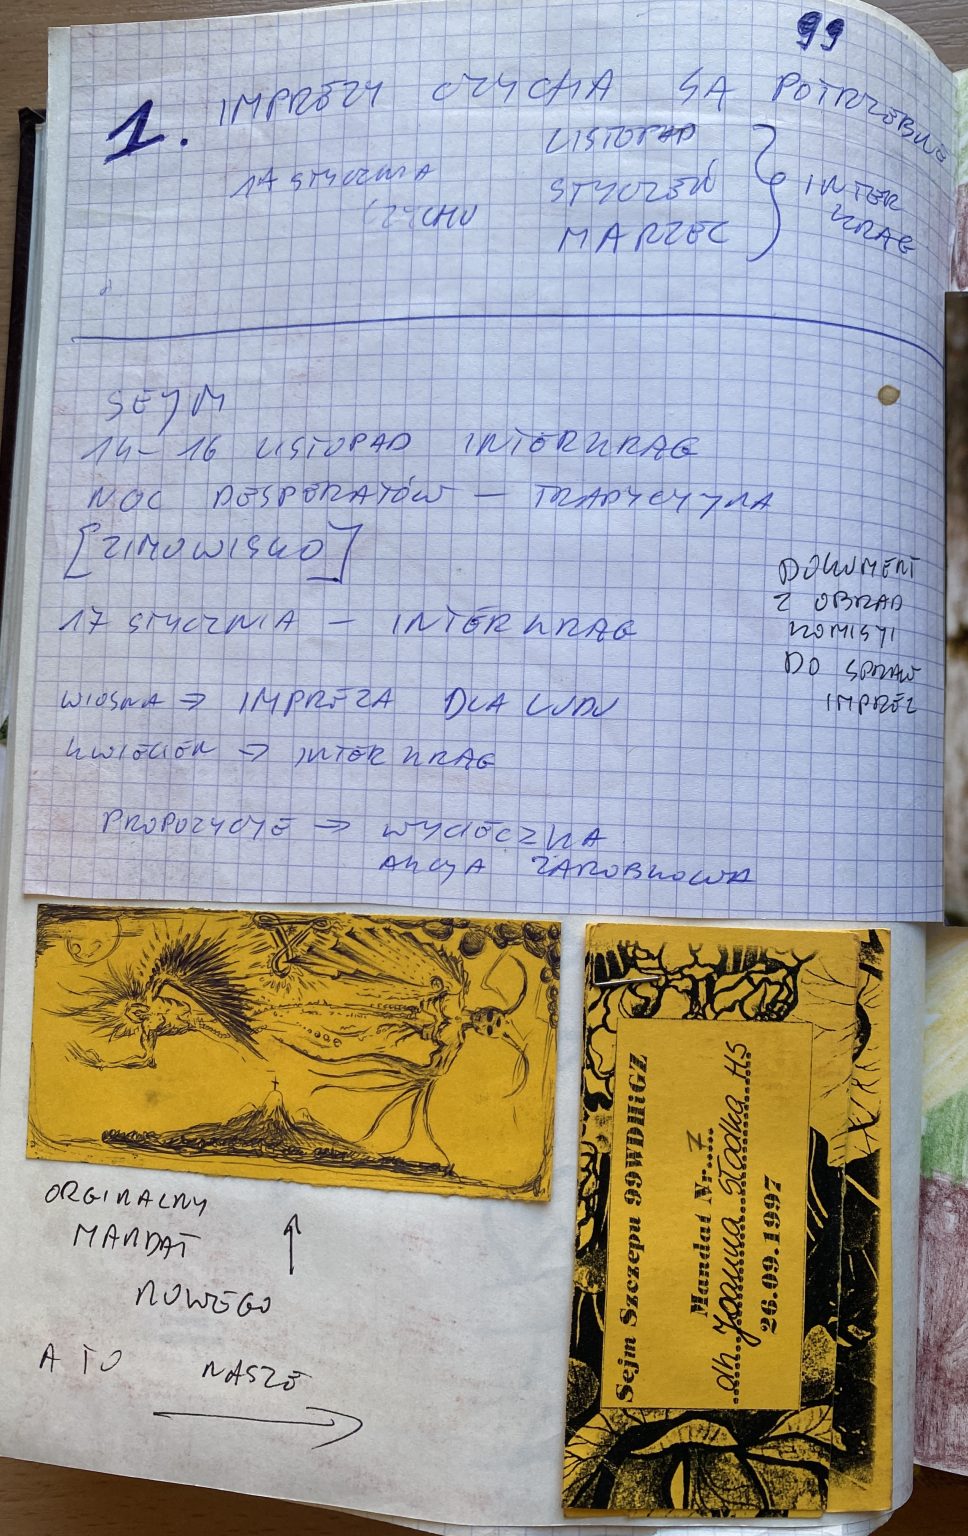 99
1. IMPREZY CZYCHA SĄ POTRZEBNE
17 STYCZNIA
CZYCHU
LISTOPAD
STYCZEŃ
MARZEC
INTER
KRĄG
SEJM
14-16 LISTOPAD INTERKRĄG
NOC DESPERATÓW – TRADYCYJNA
[ZIMOWISKO]
17 STYCZNIA – INTERKRĄG
WIOSNA ⇒ IMPREZA DLA LUDU
KWIECIEŃ ⇒ INTERKRĄG
PROPOZYCJE ⇒ WYCIECZKA
AKCJA ZAROBKOWA
DOKUMENT
Z OBRAD
KOMISJI
DO SPRAW
IMPREZ
ORGINALNY
MANDAT
NOWEGO
A TO NASZE
Sejm Szczepu 99WDHiGZ
Mandat Nr...7...
dh Joanna Słodka HS
26.09.1997